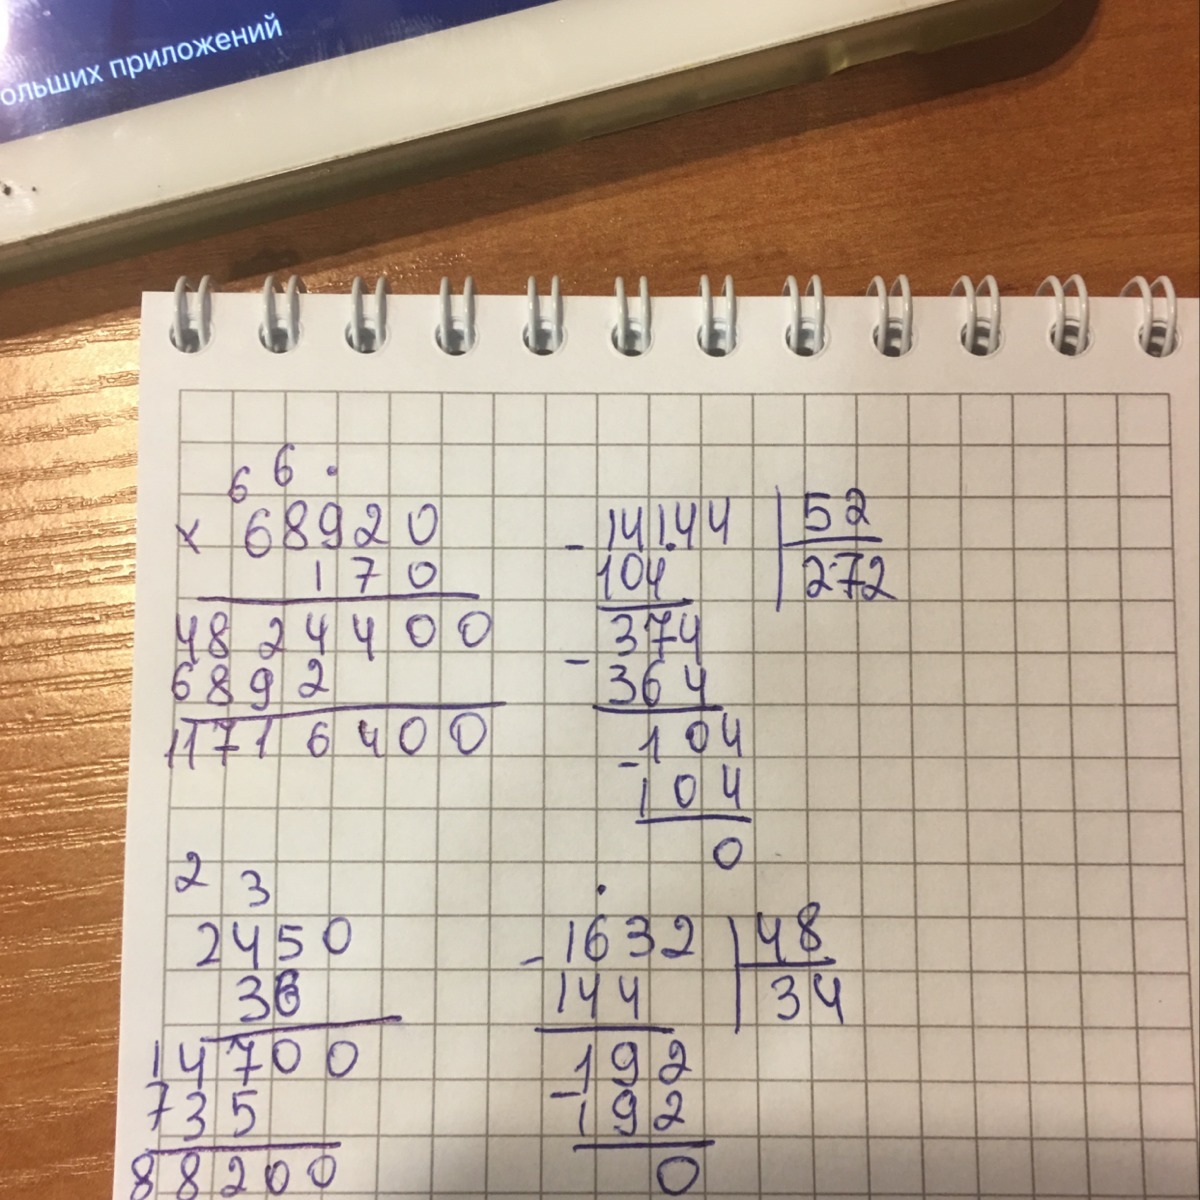 ольших приложений
6 6 .
× 68920
170
4824400
6892
11716400
- 14144 | 52
104 | 272
374
- 364
- 104
104
0
2 3
2450
36
14700
735
88200
.
- 1632 | 48
144 | 34
192
- 192
0